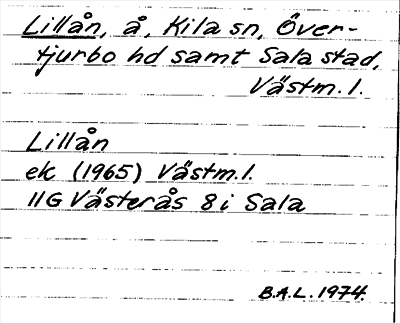 Lillån, å, Kila sn, Över-
tjurbo hd samt Sala stad,
Västm. l.
Lillån
ek (1965) Västm. l.
11G Västerås 8i Sala
B.A.L. 1974.